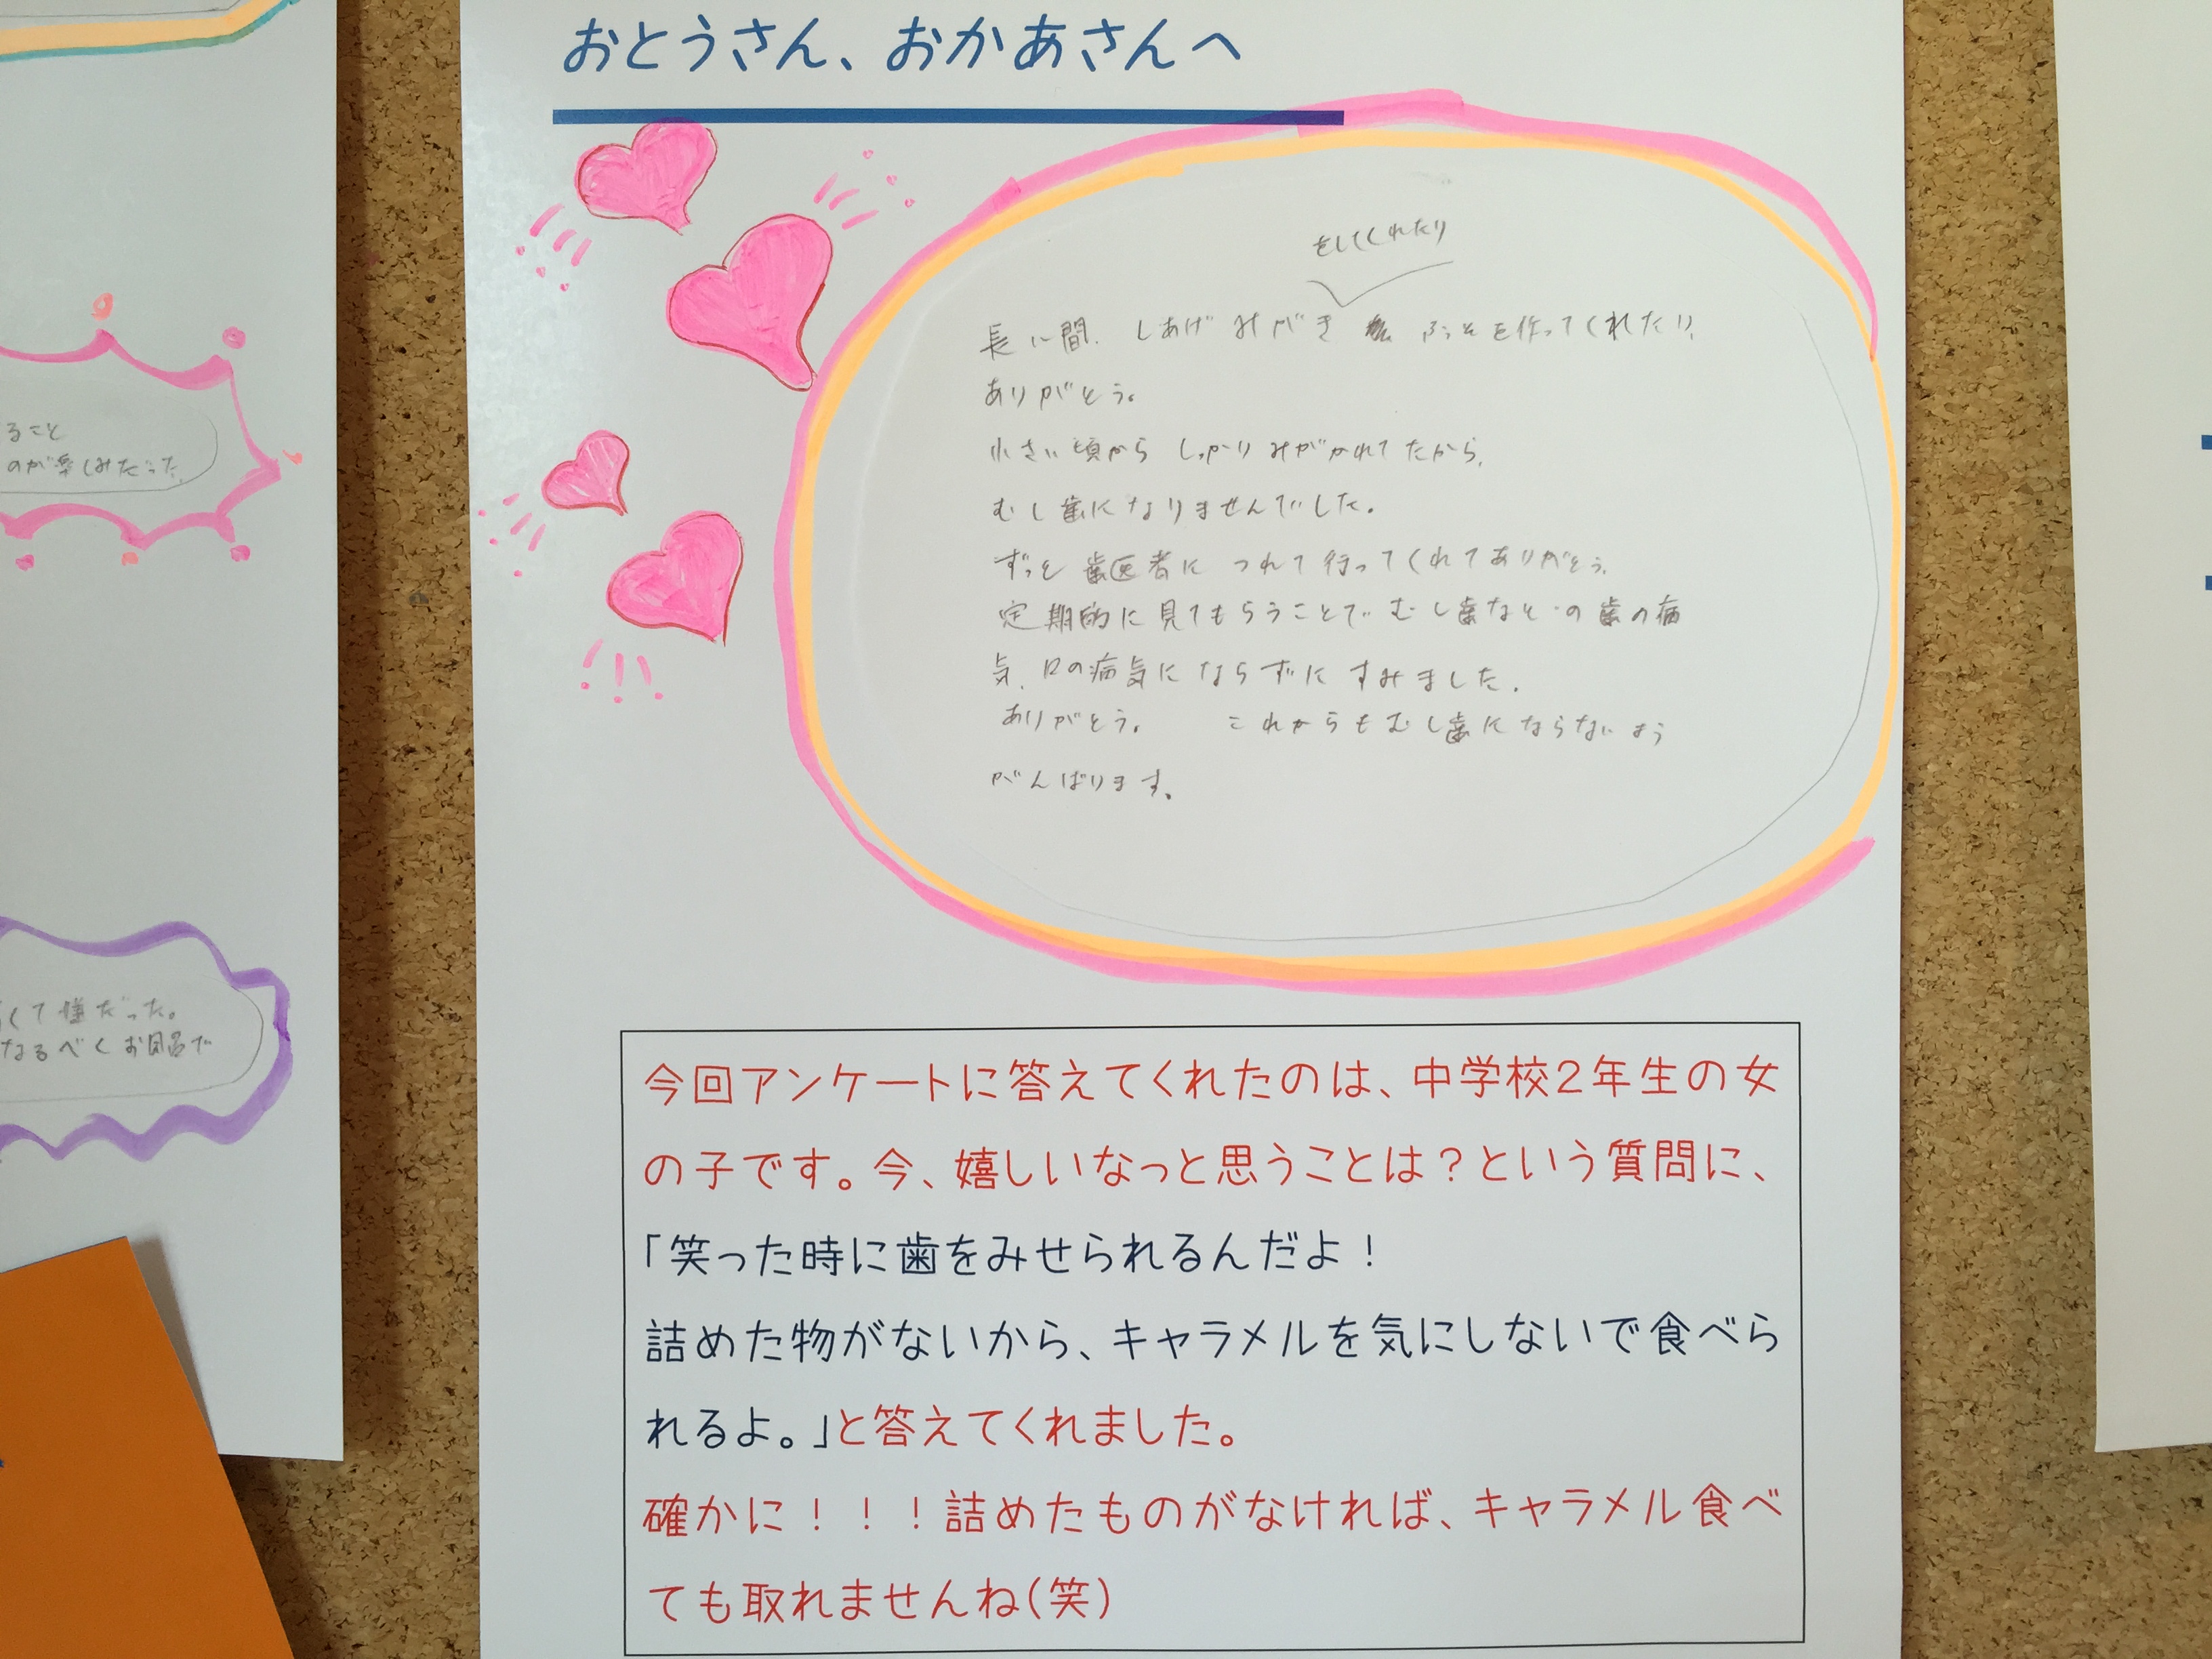 おとうさん、おかあさんへ
をしてくれたり
長い間、しあげみがき ふっそを作ってくれたり、
ありがとう。
小さい頃から しっかりみがかれてたから、
むし歯になりませんでした。
ずっと歯医者に つれて行ってくれてありがとう。
定期的に見てもらうことで むし歯などの歯の病
気、口の病気に ならずに すみました。
ありがとう。 これからもむし歯にならないよう
がんばります。
今回アンケートに答えてくれたのは、中学校2年生の女
の子です。今、嬉しいなっと思うことは？という質問に、
「笑った時に歯をみせられるんだよ！
詰めた物がないから、キャラメルを気にしないで食べら
れるよ。」と答えてくれました。
確かに！！！詰めたものがなければ、キャラメル食べ
ても取れませんね(笑)
ること
のが楽しみだった。
くて嫌だった。
なるべくお風呂で